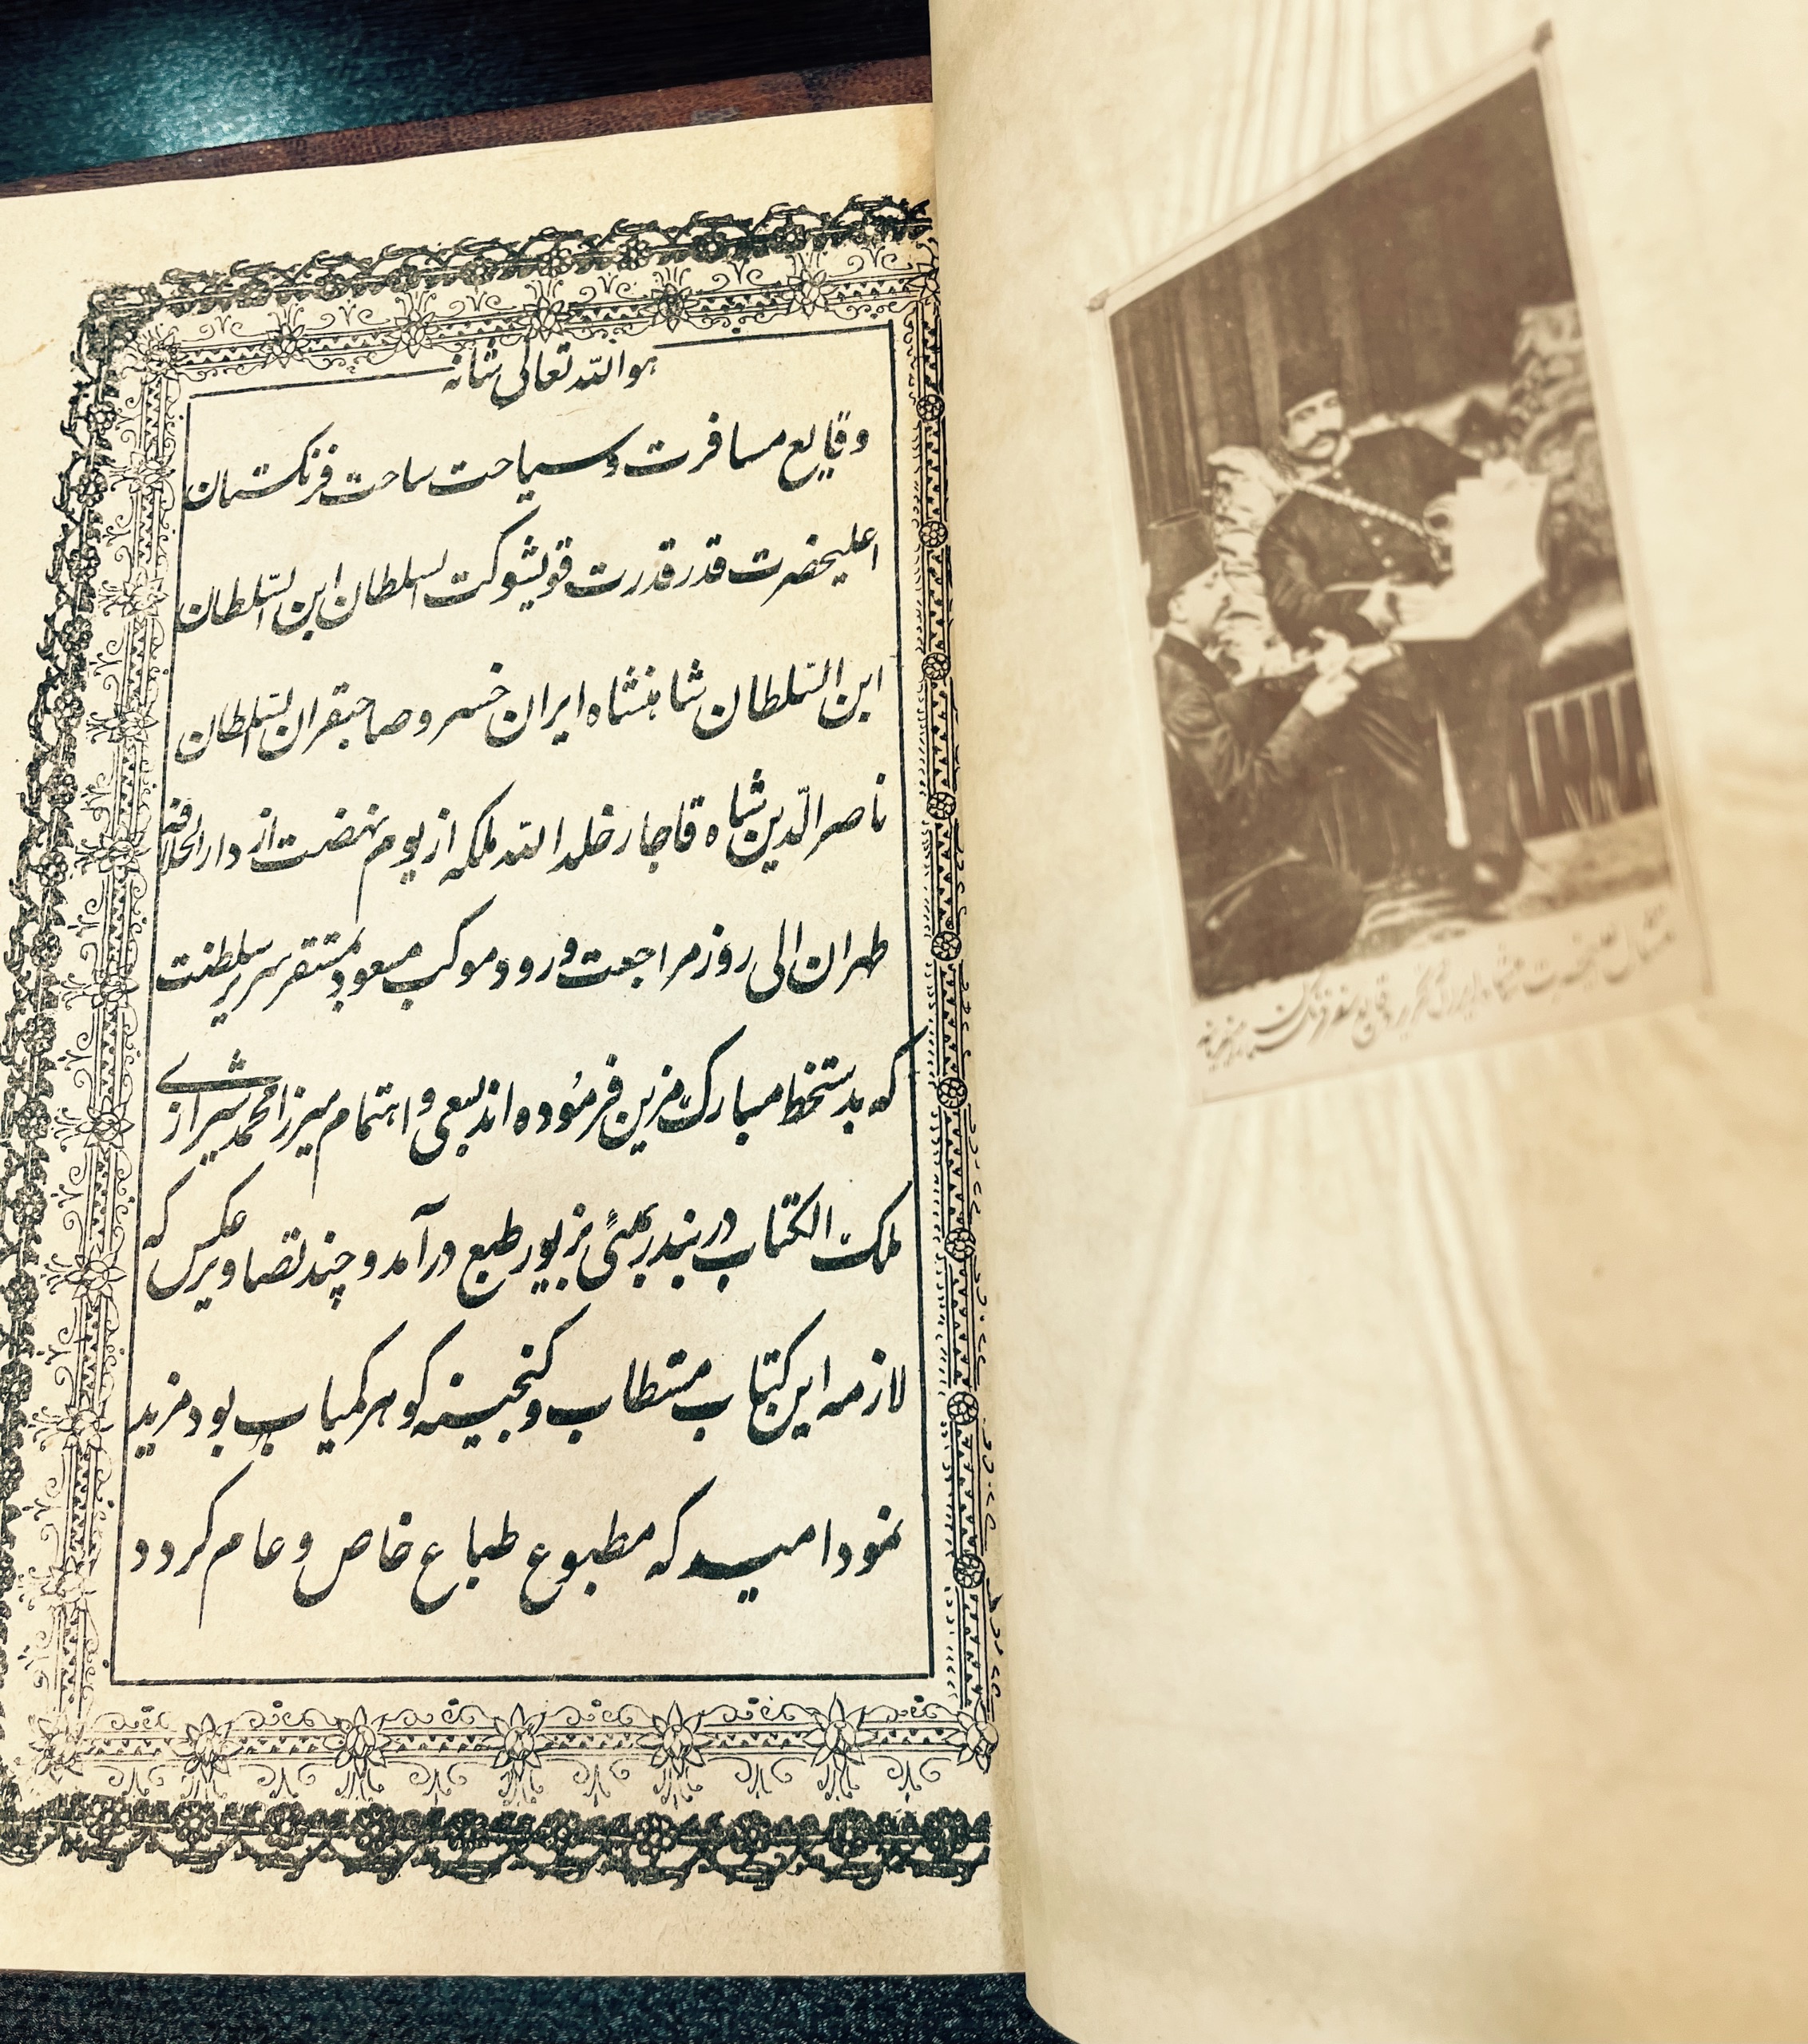 هو الله تعالی شانه
وقایع مسافرت و سیاحت ساحت فرنکستان
اعلیحضرت قدر قدرت قویشوکت السلطان ابن السّلطان
ابن السّلطان شاهنشاه ایران خسرو صاحبقران السّلطان
ناصر الدّین شاه قاجار خلد الله ملکه از یوم نهضت از دار الخلافه
طهران الی روز مراجعت و ورود موکب مسعود بمستقر سریر سلطنت
که بدستخط مبارک مزین فرموده اند بسعی و اهتمام میرزا محمد شیرازی
ملک الکتاب در بندر بمبئی بزیور طبع در آمد و چند تصاویر عکس که
لازمه این کتاب مستطاب و کنجینه کوهر کمیاب بود مزید
نمود امید که مطبوع طباع خاص و عام کردد